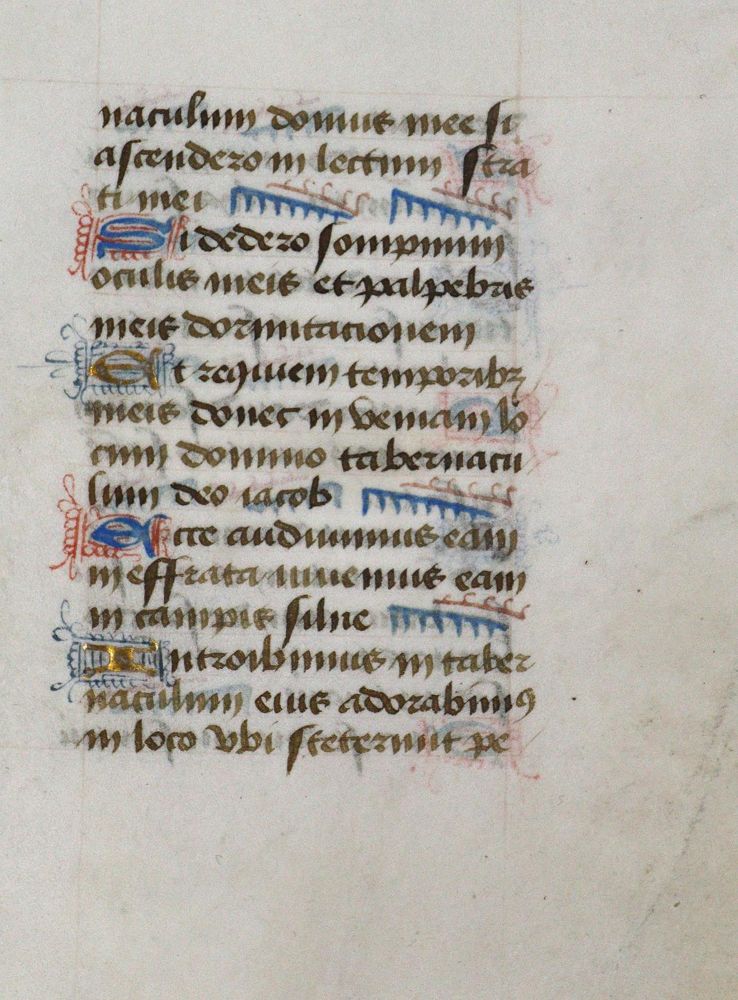 naculum domus mee si
ascendero in lectum stra
ti mei
Si dedero sompnum
oculis meis et palpebris
meis dormitacionem
Et requiem temporibꝫ
meis donec in veniam lo
cum domino tabernacu
lum deo iacob
Ecce audiuimus eam
in effrata inuenimus eam
in campis silue
Introibimus in taber
naculum eius adorabimꝰ
in loco vbi steterunt pe